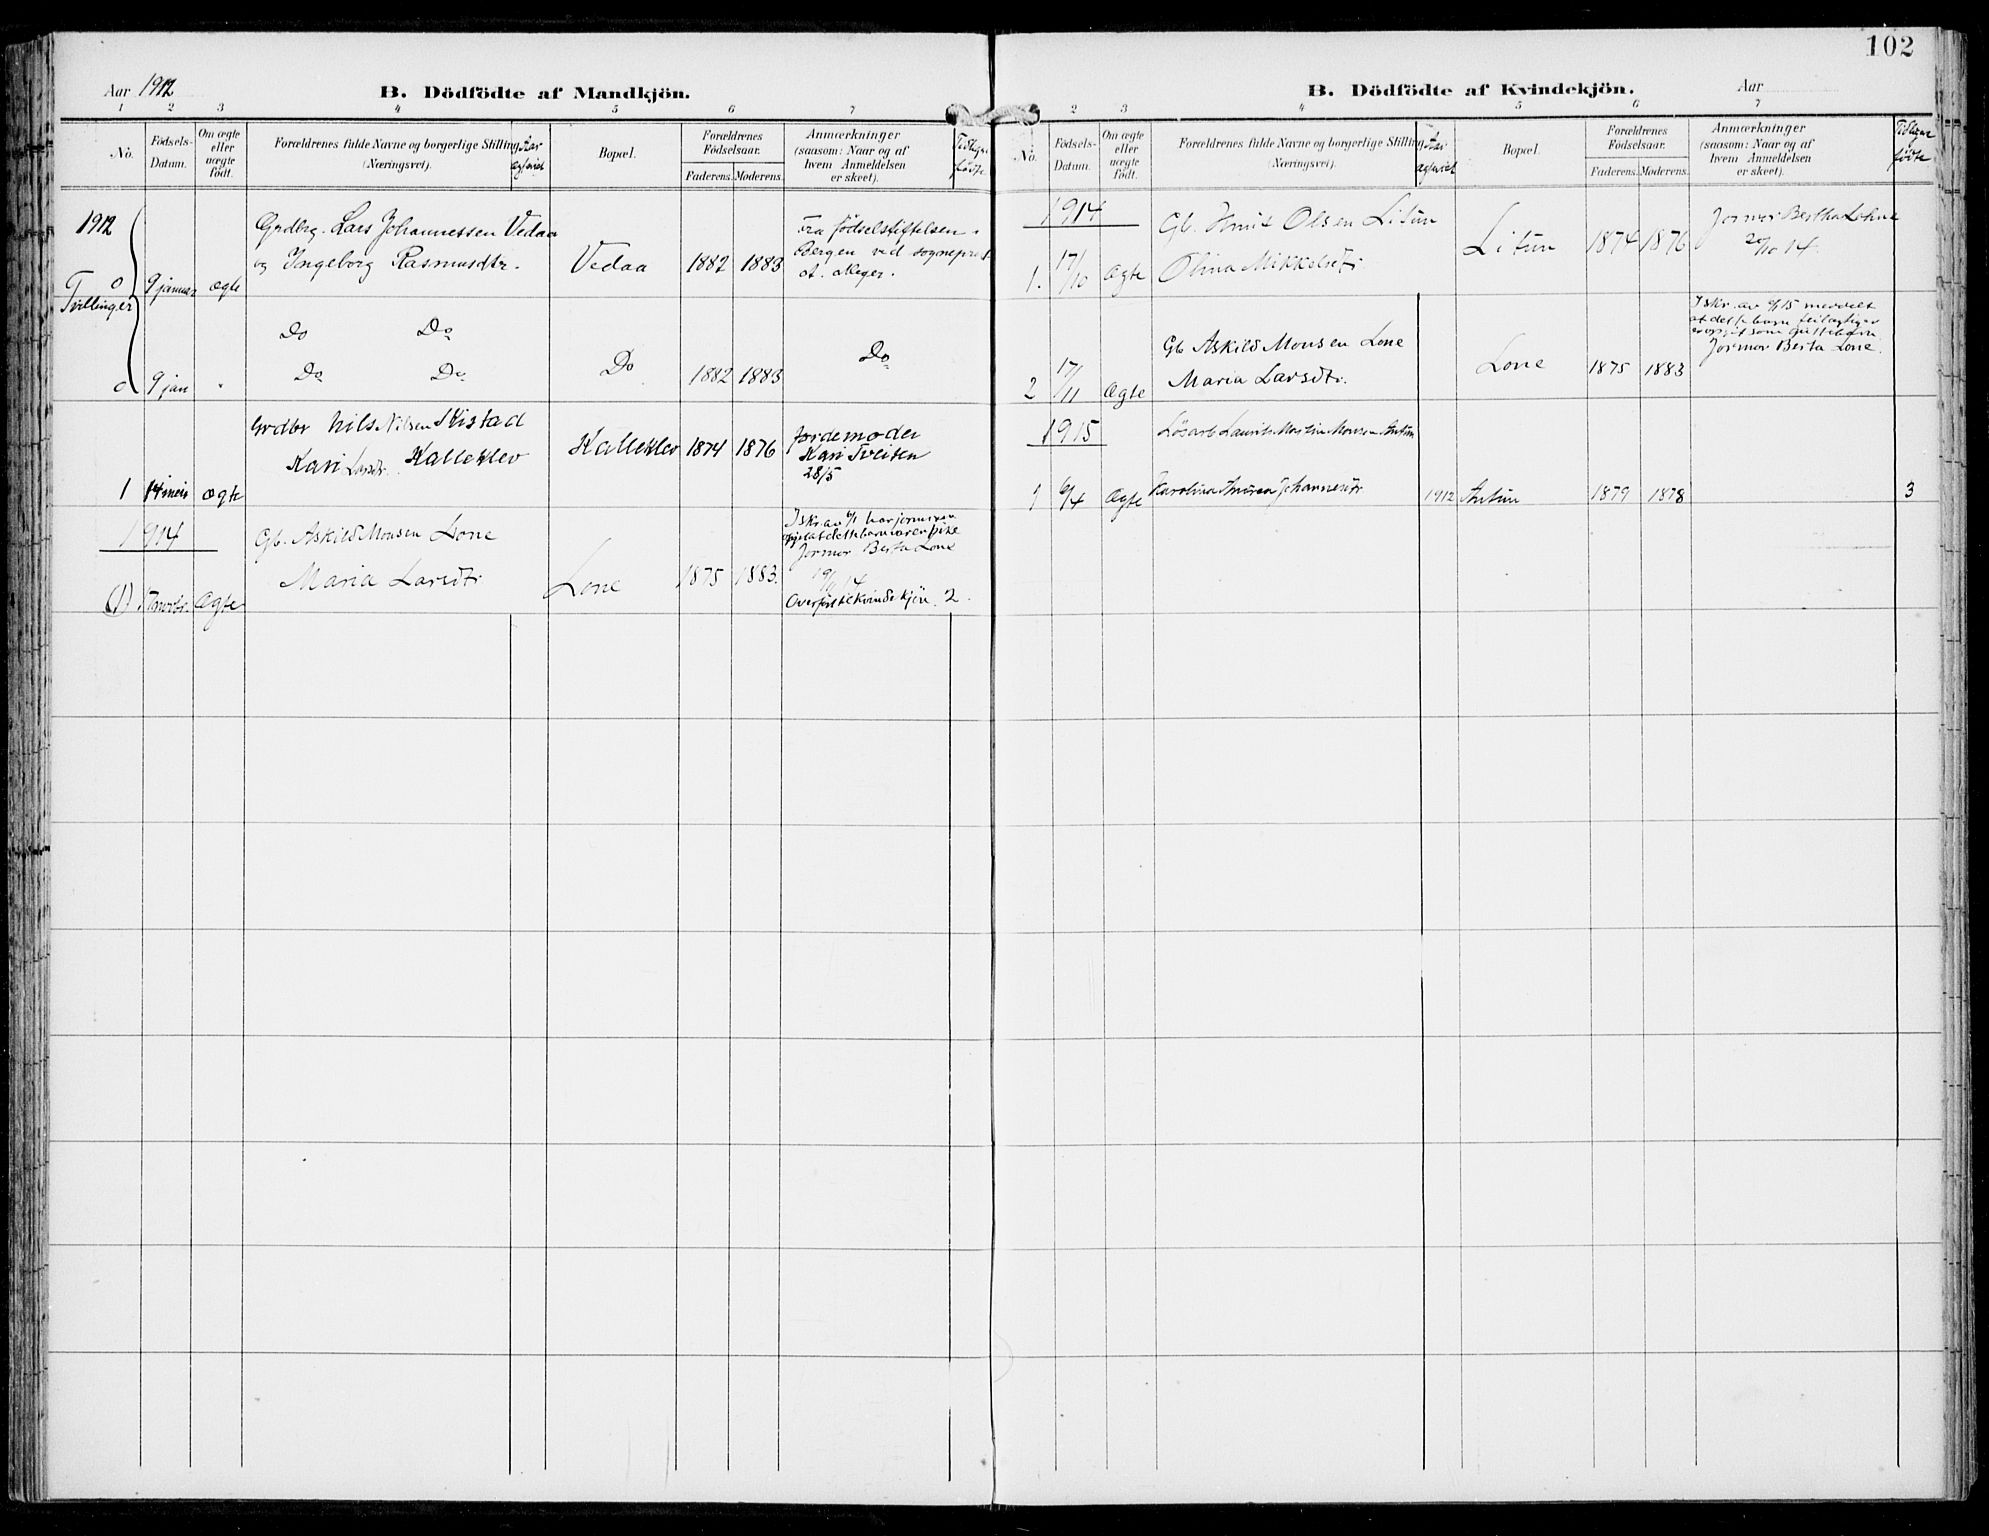 102
Aar 1912
B. Dödfödte af Mandkjön.
1 2 3 4 5 6 7
No.
Födsels-Datum.
Om ægte eller uægte födt.
Forældrenes fulde Navne og borgerlige Stilling (Næringsvei).
Bopæl.
Forældrenes Födselsaar.
Faderens. Moderens.
Anmærkninger (saasom: Naar og af hvem Anmeldelsen er skeet).
1912
Tvillinger
0 9 januar ægte
Grdbr. Lars Johannessen Vedaa
og Ingeborg Rasmusdtr.
Vedaa 1882 1883
Fra födselstiftelsen i
Bergen ved sogneprest
0 9 jan "
Do Do
Do Do
Do 1882 1883 Do
1 14 mai ægte
Grdbr Nils Nilsen Skistad
Kari Larsdtr. Kalleklev
Kalleklev 1874 1876
Jordemoder
Kari Tveiten
28/5
1914
(1) 17 novbr. Ægte
Gb. Askild Monsen Lone
Maria Larsdtr
Lone 1875 1883.
Jormor Berta Lone
19/11 14
Overfört til kvindekjön 2.
B. Dödfödte af Kvindekjön.
Aar
2 3 4 5 6 7
No.
Födsels-Datum.
Om ægte eller uægte födt.
Forældrenes fulde Navne og borgerlige Stilling (Næringsvei).
Bopæl.
Forældrenes Födselsaar.
Faderens. Moderens.
Anmærkninger (saasom: Naar og af hvem Anmeldelsen er skeet).
1914
1. 17/10 Ægte
Gb. Knut Olsen Litun
Olina Mikkelsdtr
Litun 1874 1876
Jormor Bertha Lohne
20/10 14.
2 17/11 Ægte
Gb Askild Monsen Lone
Maria Larsdtr.
Lone 1875 1883
Jormor Berta Lone.
1915
1 6/4 Ægte
Lösarb. Laurits Martin Monsen Antun
Karolina Johannesdtr
1912 Antun 1879 1878 3